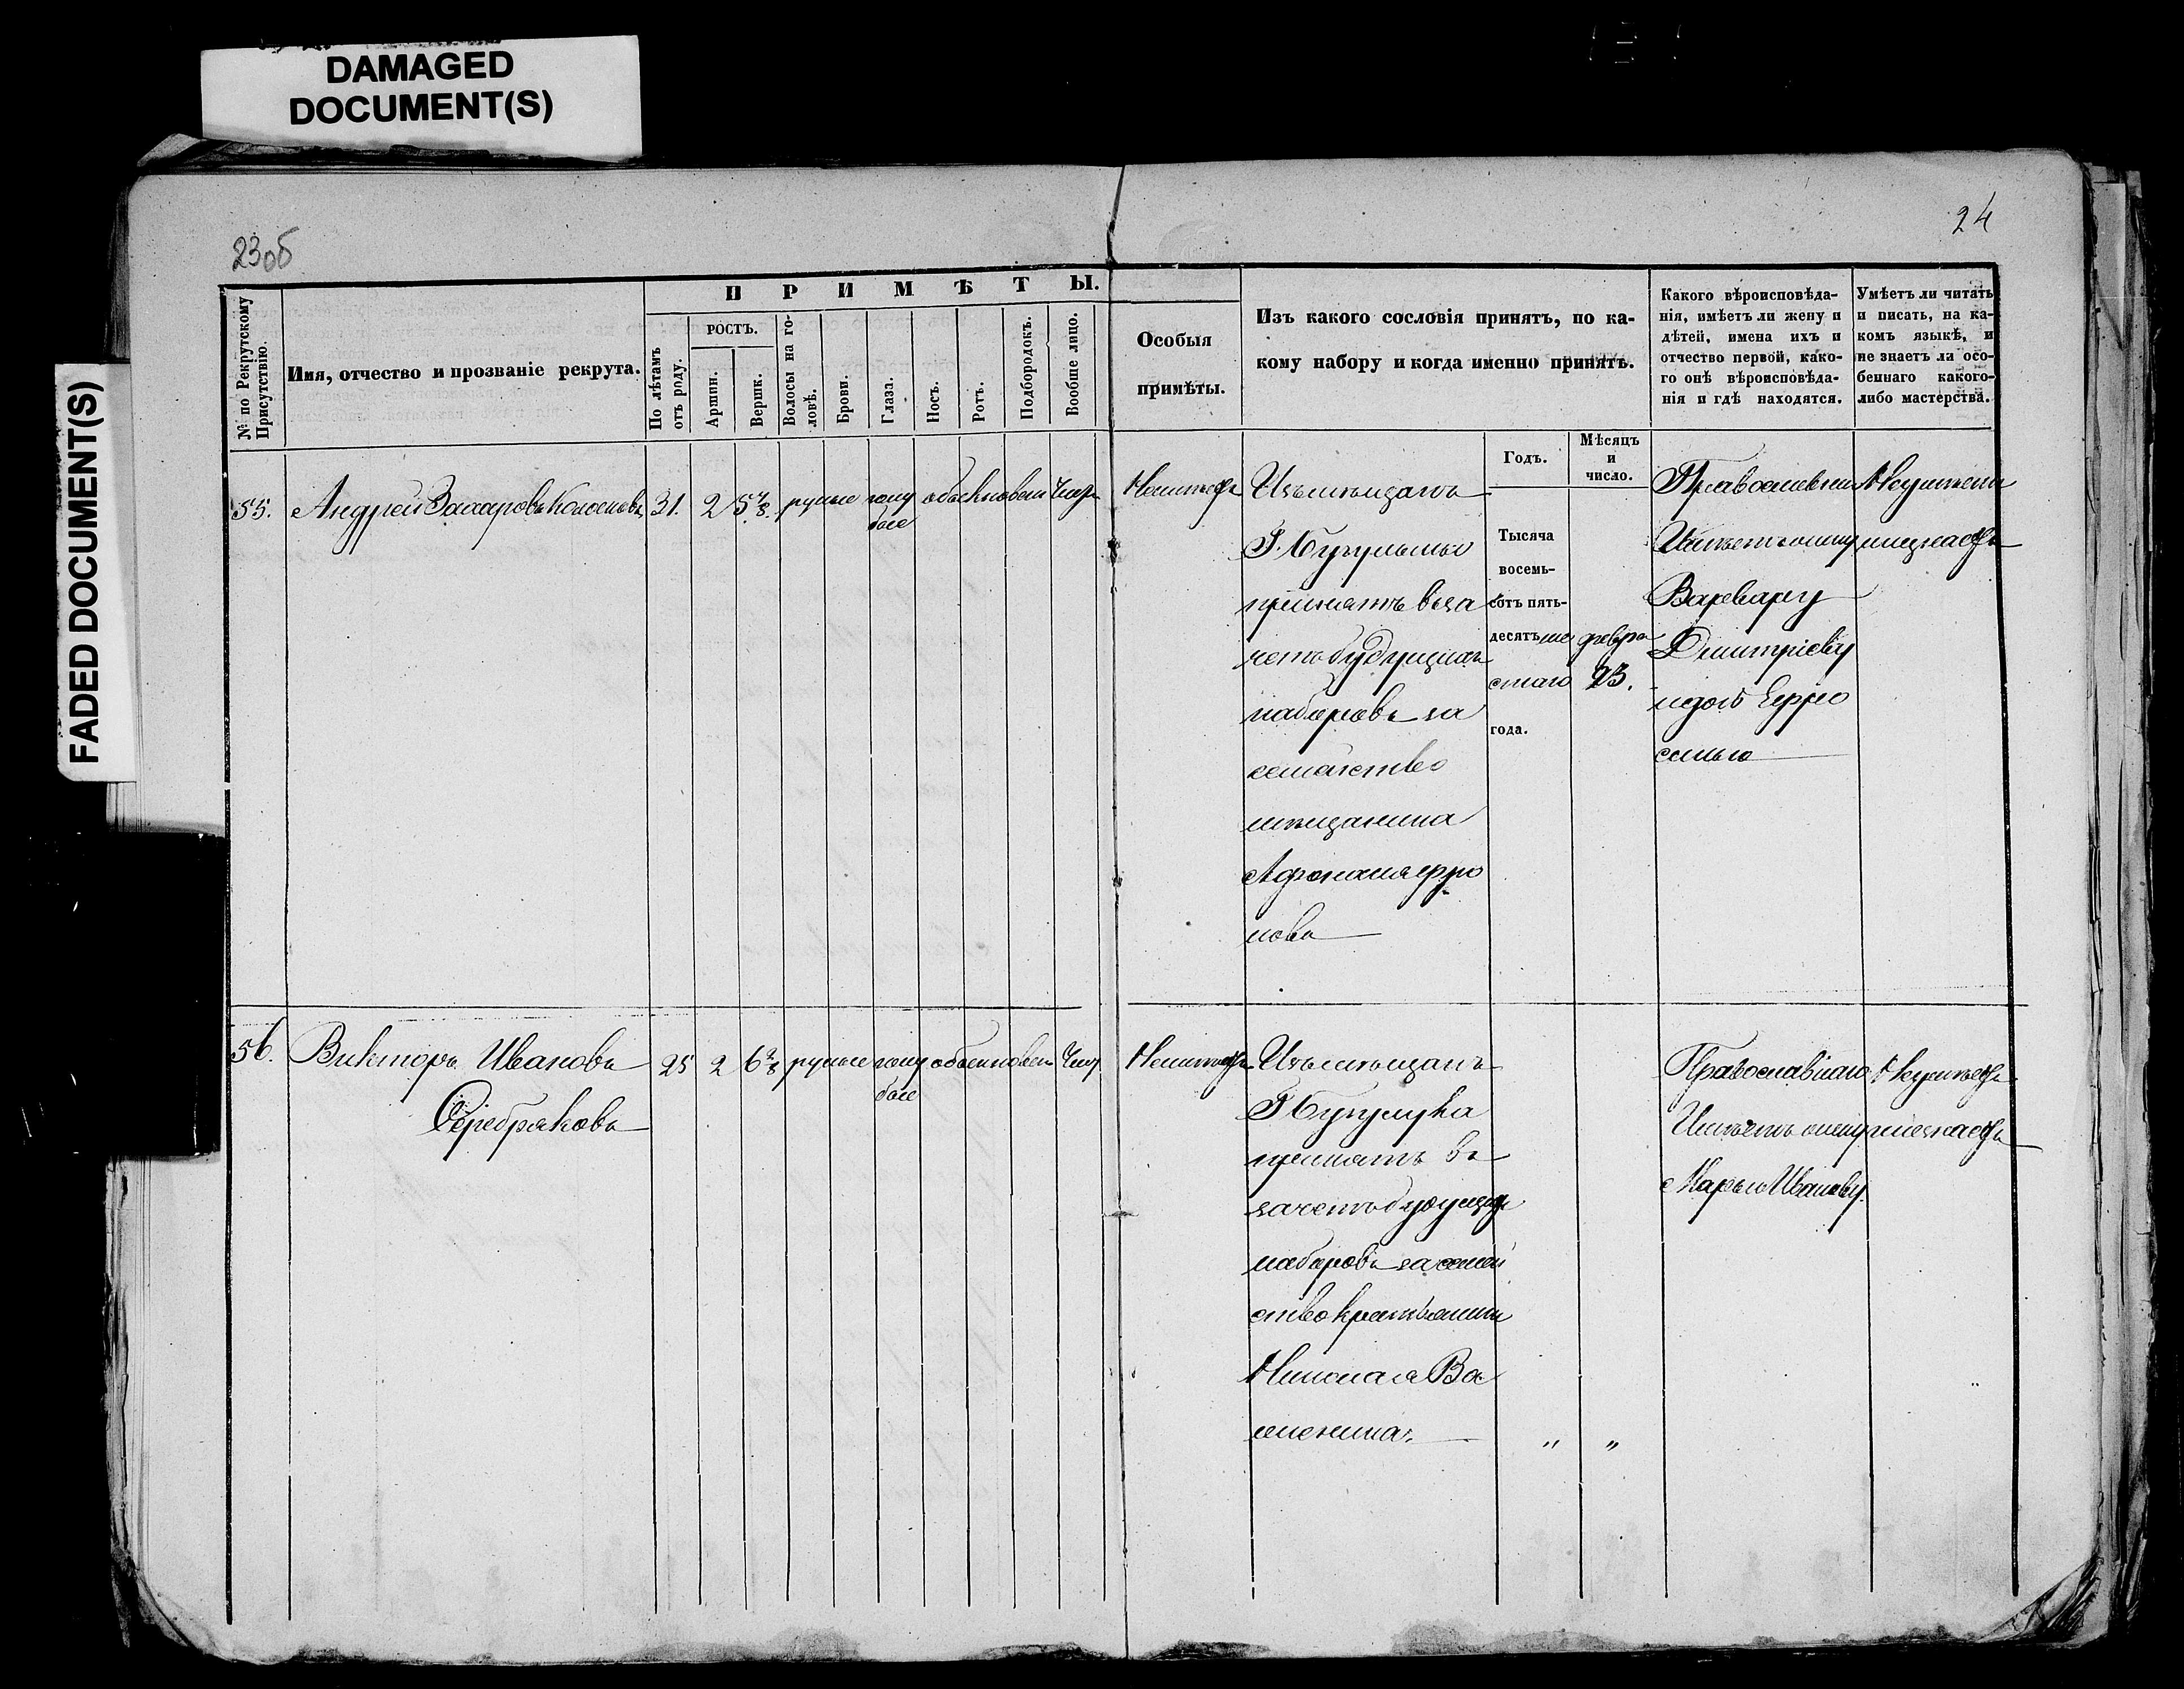 DAMAGED
DOCUMENT(S)
FADED DOCUMENT(S)
23об
24
№ по Рекрутскому Присутствію.
Имя, отчество и прозваніе рекрута.
ПРИМѢТЫ.
По лѣтамъ отъ роду.
РОСТЪ.
Аршин.
Вершк.
Волосы на головѣ.
Брови.
Глаза.
Носъ.
Ротъ.
Подбородокъ.
Вообще лицо.
Особыя
примѣты.
Изъ какого сословія принятъ, по ка-
кому набору и когда именно принятъ.
Годъ.
Мѣсяцъ
и
число.
Какого вѣроисповѣда-
нія, имѣетъ ли жену и
дѣтей, имена ихъ и
отчество первой, како-
го онѣ вѣроисповѣда-
нія и гдѣ находятся.
Умѣетъ ли читать
и писать, на ка-
комъ языкѣ, и
не знаетъ ли осо-
беннаго какого-
либо мастерства.
55.
Андрей Захаровъ Колосковъ
31.
2
5 /8.
русые
голу
бые
обыкновен
Чист
Неимѣетъ
Изъ мѣщанъ
Г. Бугульмы
принятъ въ за
четъ будущихъ
наборовъ за
семейство
мѣщанина
нова
Тысяча
восемь-
сотъ пять-
десятъ ше
стаго
года.
февра
23.
Православнаго
Имѣетъ жену
Варвару
Дмитріеву
сѣнью
Неумѣетъ
и незнаетъ
56.
Викторъ Ивановъ
Серебряковъ
25
2
6 2/8
русые
голу
бые
обыкновен
Чист
Неимѣетъ
Изъ мѣщанъ
принятъ въ
зачетъ будущихъ
наборовъ за семей
ство крестьянина
Николая Ва
" "
Православнаго
Имѣетъ жену
Марью Иванову.
Неумѣетъ
и незнаетъ